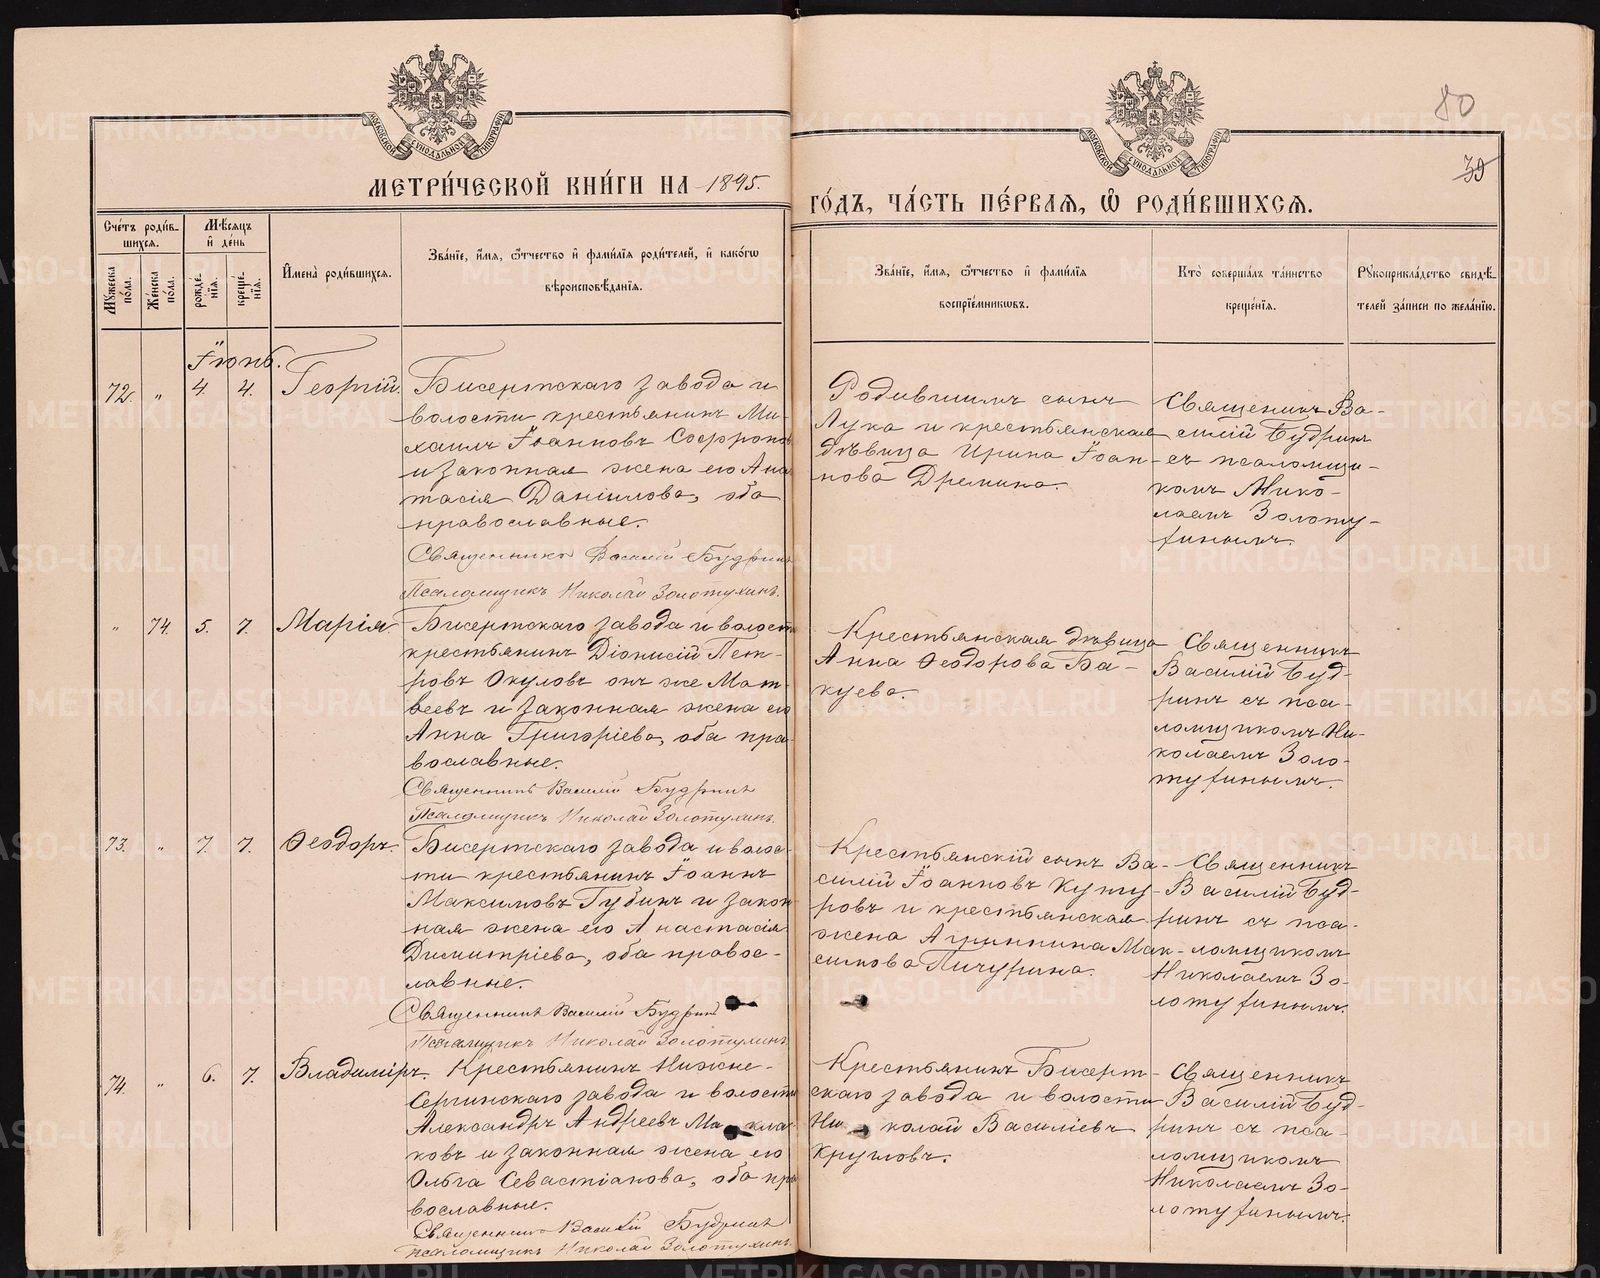 80
39
МОСКОВСКОЙ СѴНОДАЛЬНОЙ ТИПОГРАФІИ
МОСКОВСКОЙ СѴНОДАЛЬНОЙ ТИПОГРАФІИ
МЕТРИ́ЧЕСКОЙ КНИ́ГИ НА 1895.
ГО́ДЪ, ЧА́СТЬ ПЕ́РВАЯ, Ѡ҆ РОДИ́ВШИХСЯ.
Сче́тъ роди́в-
шихся.
Мѣ́сяцъ
и҆ де́нь
Мꙋ́жеска по́ла.
Же́нска по́ла.
рожде́нїя.
креще́нїя.
И҆мена̀ роди́вшихся.
Зва́нїе, и҆́мя, ѻ҆́тчество и҆ фами́лїя роди́телей, и҆ како́гѡ
вѣроисповѣ́данїя.
Зва́нїе, и҆́мя, ѻ҆́тчество и҆ фами́лїя
воспрїе́мникѡвъ.
Кто̀ соверша́лъ та́инство
креще́нїя.
Рꙋкоприкла́дство свидѣ́-
телей за́писи по жела́нїю.
Іюнь.
72. " 4. 4. Георгій.
Бисертскаго завода и
волости крестьянинъ Ми-
хаилъ Іоанновъ Софронов
и законная жена его Ана
тасія Даніилова, оба
православные.
Священникъ Василій Будринъ
Псаломщикъ Николай Золотухинъ.
Родившимъ сынъ
Лука и крестьянская
дѣвица Ирина Іоан-
нова Дремина.
Священникъ Ва-
силій Будринъ
съ псаломщи-
комъ Нико-
лаемъ Золоту-
хинымъ.
" 74. 5. 7. Марія.
Бисертскаго завода и волост
крестьянинъ Діонисій Пет-
ровъ Окуловъ онъ же Мат-
веевъ и законная жена его
Анна Григоріева, оба пра-
вославные.
Священникъ Василій Будринъ
Псаломщикъ Николай Золотухинъ.
Крестьянская дѣвица
Анна Ѳеодорова Ба-
куева.
Священникъ
Василій Буд-
ринъ съ пса-
ломщикомъ Ни-
колаемъ Золо-
тухинымъ.
73. " 7. 7. Ѳеодоръ.
Бисертскаго завода и волос-
ти крестьянинъ Іоаннъ
Максимовъ Губинъ и закон
ная жена его Анастасія
Димитріева, оба правос-
лавные.
Священникъ Василій Будринъ
Псаломщикъ Николай Золотухинъ
Крестьянскій сынъ Ва-
силій Іоанновъ Куту
ровъ и крестьянская
жена Агриппина Мак-
симова Пичурина.
Священникъ
Василій Буд-
ринъ съ пса-
ломщикомъ
Николаемъ Зо-
лотухинымъ.
74. " 6. 7. Владиміръ.
Крестьянинъ Нижне-
Сергинскаго завода и волости
Александръ Андреевъ Ма кла
ковъ и законная жена его
Ольга Севастіанова, оба пра
вославные.
Священникъ Василій Будринъ
Псаломщикъ Николай Золотухинъ.
Крестьянинъ Бисерт-
скаго завода и волости
Ни колай Василіевъ
Кругловъ.
Священникъ
Василій Буд-
ринъ съ пса-
ломщикомъ
Николаемъ Зо-
лотухинымъ.
METRIKI.GASO-URAL.RU